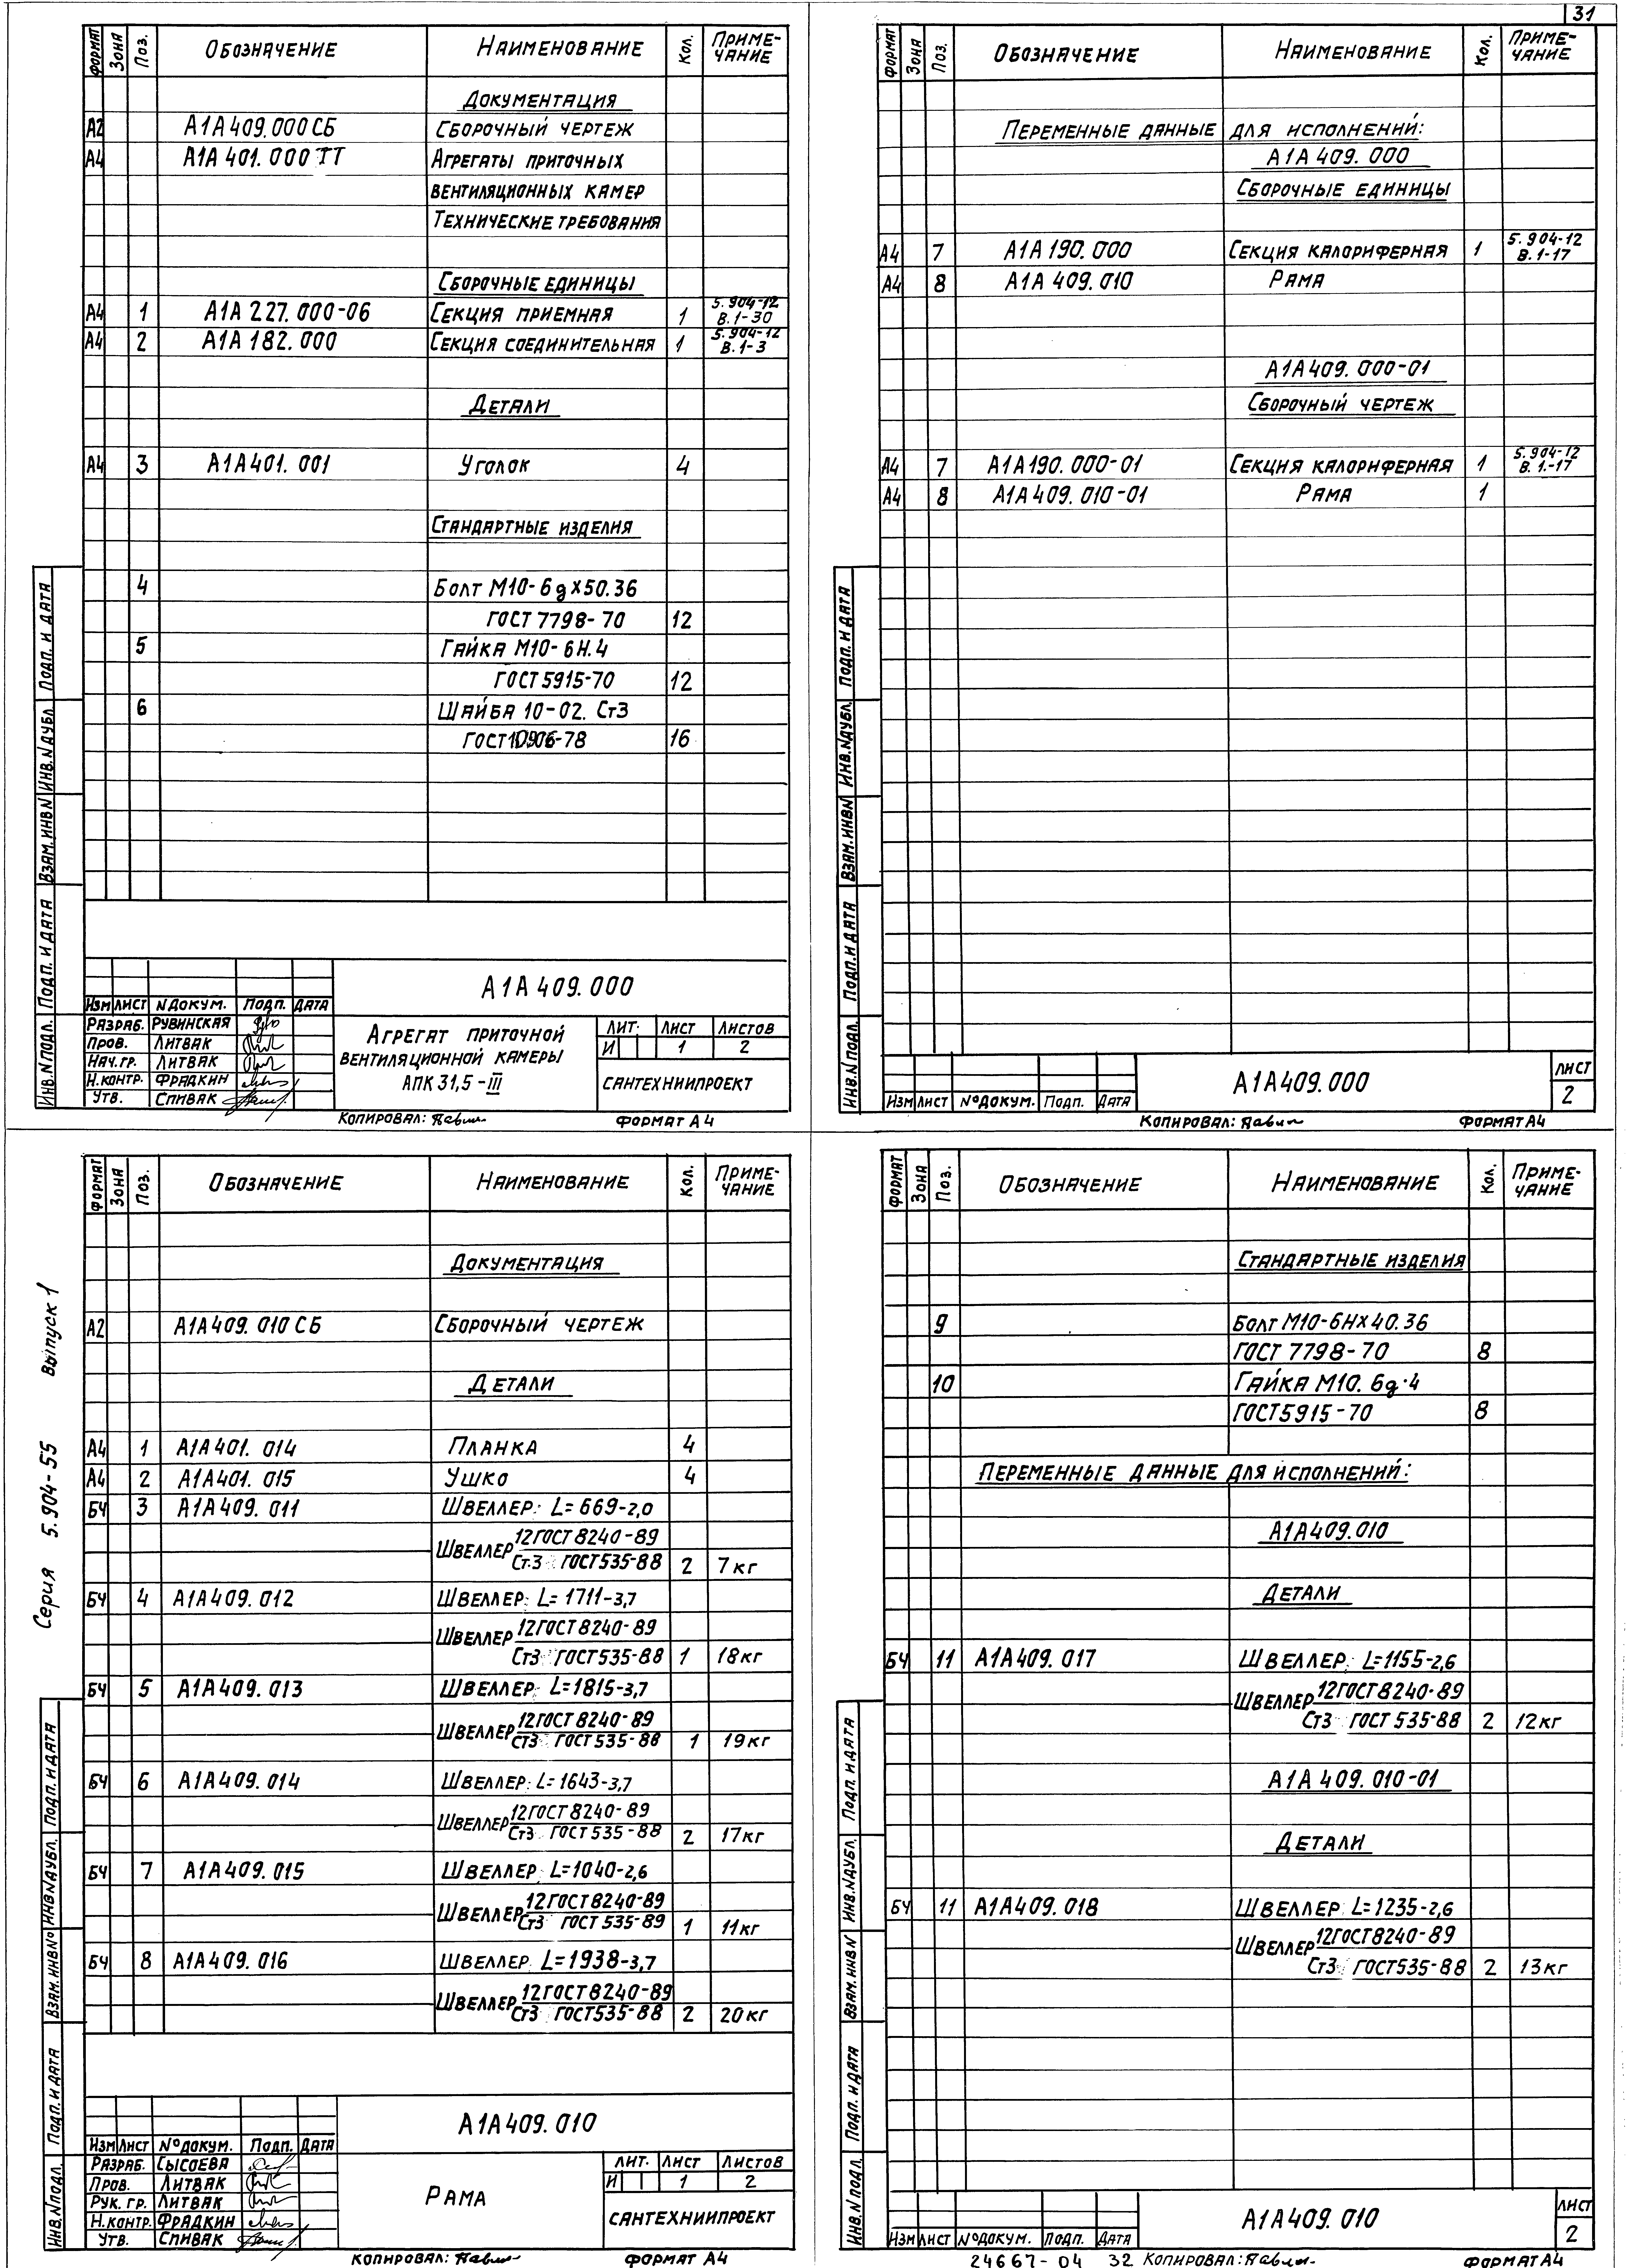 31
ФОРМАТ ЗОНА ПОЗ. ОБОЗНАЧЕНИЕ НАИМЕНОВАНИЕ КОЛ. ПРИМЕ-
ЧАНИЕ
ДОКУМЕНТАЦИЯ
А2 А1А409.000СБ СБОРОЧНЫЙ ЧЕРТЕЖ
А4 А1А401.000 ТТ АГРЕГАТЫ ПРИТОЧНЫХ
ВЕНТИЛЯЦИОННЫХ КАМЕР
ТЕХНИЧЕСКИЕ ТРЕБОВАНИЯ
СБОРОЧНЫЕ ЕДИНИЦЫ
А4 1 А1А 227.000-06 СЕКЦИЯ ПРИЕМНАЯ 1 5.904-12
В.1-30
А4 2 А1А 182.000 СЕКЦИЯ СОЕДИНИТЕЛЬНАЯ 1 5.904-12
В.1-3
ДЕТАЛИ
А4 3 А1А401.001 УГОЛОК 4
СТАНДАРТНЫЕ ИЗДЕЛИЯ
4 БОЛТ М10-6gx50.36
ГОСТ 7798-70 12
5 ГАЙКА М10-6Н.4
ГОСТ 5915-70 12
6 ШАЙБА 10-02. Ст3
ГОСТ10906-78 16
ИНВ.N ПОДЛ. ПОДП. И ДАТА ВЗАМ.ИНВ.N ИНВ.N ДУБЛ. ПОДП. И ДАТА
А1А 409.000
ИЗМ ЛИСТ N ДОКУМ. ПОДП. ДАТА
РАЗРАБ. РУВИНСКАЯ
ПРОВ. ЛИТВАК
НАЧ.ГР. ЛИТВАК
Н.КОНТР. ФРАДКИН
УТВ. СПИВАК
АГРЕГАТ ПРИТОЧНОЙ
ВЕНТИЛЯЦИОННОЙ КАМЕРЫ
АПК 31,5-III
ЛИТ. ЛИСТ ЛИСТОВ
И 1 2
САНТЕХНИИПРОЕКТ
КОПИРОВАЛ: ФОРМАТ А4
ФОРМАТ ЗОНА ПОЗ. ОБОЗНАЧЕНИЕ НАИМЕНОВАНИЕ КОЛ. ПРИМЕ-
ЧАНИЕ
ПЕРЕМЕННЫЕ ДАННЫЕ ДЛЯ ИСПОЛНЕНИЙ:
А1А 409.000
СБОРОЧНЫЕ ЕДИНИЦЫ
А4 7 А1А 190.000 СЕКЦИЯ КАЛОРИФЕРНАЯ 1 5.904-12
В.1-17
А4 8 А1А 409.010 РАМА
А1А409.000-01
СБОРОЧНЫЙ ЧЕРТЕЖ
А4 7 А1А190.000-01 СЕКЦИЯ КАЛОРИФЕРНАЯ 1 5.904-12
В.1.-17
А4 8 А1А409.010-01 РАМА 1
ИНВ.N ПОДЛ. ПОДП. И ДАТА ВЗАМ.ИНВ.N ИНВ.N ДУБЛ. ПОДП. И ДАТА
ИЗМ ЛИСТ N°ДОКУМ. ПОДП. ДАТА
А1А409.000
ЛИСТ
2
КОПИРОВАЛ: ФОРМАТ А4
Серия 5.904-55 Выпуск 1
ФОРМАТ ЗОНА ПОЗ. ОБОЗНАЧЕНИЕ НАИМЕНОВАНИЕ КОЛ. ПРИМЕ-
ЧАНИЕ
ДОКУМЕНТАЦИЯ
А2 А1А409.010 СБ СБОРОЧНЫЙ ЧЕРТЕЖ
ДЕТАЛИ
А4 1 А1А401.014 ПЛАНКА 4
А4 2 А1А401.015 УШКО 4
БЧ 3 А1А409.011 ШВЕЛЛЕР: L=669-2,0
ШВЕЛЛЕР 12ГОСТ8240-89
Ст.3 ГОСТ535-88 2 7кг
БЧ 4 А1А409.012 ШВЕЛЛЕР: L=1711-3,7
ШВЕЛЛЕР 12ГОСТ8240-89
Ст3 ГОСТ535-88 1 18кг
БЧ 5 А1А409.013 ШВЕЛЛЕР: L=1815-3,7
ШВЕЛЛЕР 12ГОСТ8240-89
Ст3 ГОСТ535-88 1 19кг
БЧ 6 А1А409.014 ШВЕЛЛЕР: L=1643-3,7
ШВЕЛЛЕР 12ГОСТ8240-89
Ст3 ГОСТ535-88 2 17кг
БЧ 7 А1А409.015 ШВЕЛЛЕР: L=1040-2,6
ШВЕЛЛЕР 12ГОСТ8240-89
Ст3 ГОСТ535-89 1 11кг
БЧ 8 А1А409.016 ШВЕЛЛЕР: L=1938-3,7
ШВЕЛЛЕР 12ГОСТ8240-89
Ст3 ГОСТ535-88 2 20кг
ИНВ.N ПОДЛ. ПОДП. И ДАТА ВЗАМ.ИНВ N° ИНВ N ДУБЛ. ПОДП. И ДАТА
А1А409.010
ИЗМ ЛИСТ N°ДОКУМ. ПОДП. ДАТА
РАЗРАБ. СЫСОЕВА
ПРОВ. ЛИТВАК
РУК. ГР. ЛИТВАК
Н.КОНТР. ФРАДКИН
УТВ. СПИВАК
РАМА
ЛИТ. ЛИСТ ЛИСТОВ
И 1 2
САНТЕХНИИПРОЕКТ
КОПИРОВАЛ: ФОРМАТ А4
ФОРМАТ ЗОНА ПОЗ. ОБОЗНАЧЕНИЕ НАИМЕНОВАНИЕ КОЛ. ПРИМЕ-
ЧАНИЕ
СТАНДАРТНЫЕ ИЗДЕЛИЯ
9 БОЛТ М10-6Нх40.36
ГОСТ 7798-70 8
10 ГАЙКА М10.6g.4
ГОСТ5915-70 8
ПЕРЕМЕННЫЕ ДАННЫЕ ДЛЯ ИСПОЛНЕНИЙ:
А1А409.010
ДЕТАЛИ
БЧ 11 А1А409.017 ШВЕЛЛЕР: L=1155-2,6
ШВЕЛЛЕР 12ГОСТ8240-89
Ст3 ГОСТ 535-88 2 12кг
А1А 409.010-01
ДЕТАЛИ
БЧ 11 А1А409.018 ШВЕЛЛЕР: L=1235-2,6
ШВЕЛЛЕР 12ГОСТ8240-89
Ст3 ГОСТ535-88 2 13кг
ИНВ.N ПОДЛ. ПОДП. И ДАТА ВЗАМ.ИНВ.N ИНВ.N ДУБЛ. ПОДП. И ДАТА
ИЗМ ЛИСТ N°ДОКУМ. ПОДП. ДАТА
А1А409.010
ЛИСТ
2
24667-04 32 КОПИРОВАЛ: ФОРМАТ А4